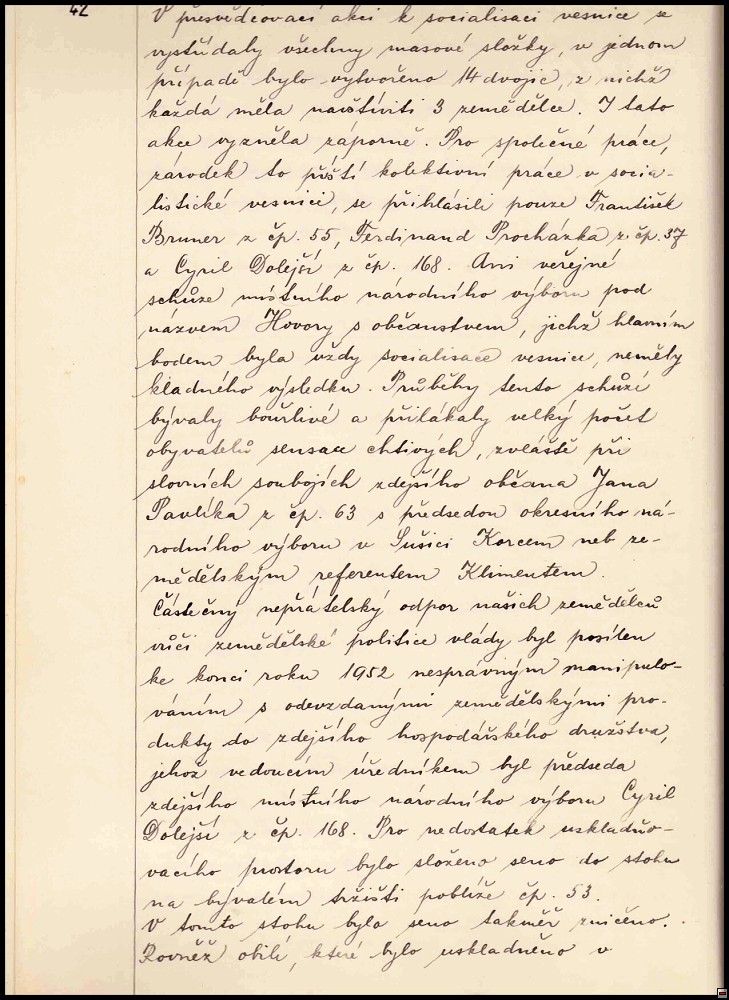 42
V přesvědčovací akci k socialisaci vesnice se
vystřídaly všechny masové složky, v jednom
případě bylo vytvořeno 14 dvojic, z nichž
každá měla navštíviti 3 zemědělce. I tato
akce vyzněla záporně. Pro společné práce,
zárodek to příští kolektivní práce v socia-
listické vesnici, se přihlásili pouze František
Bruner z čp. 55, Ferdinand Procházka z čp. 37
a Cyril Dolejší z čp. 168. Ani veřejné
schůze místního národního výboru pod
názvem Hovory s občanstvem, jichž hlavním
bodem byla vždy socialisace vesnice, neměly
kladného výsledku. Průběhy těnto schůzí
bývaly bouřlivé a přilákaly velký počet
obyvatelů sensace chtivých, zvláště při
slovních soubojích zdejšího občana Jana
Pavlíka z čp. 63 s předsedou okresního ná-
rodního výboru v Sušici Korcem neb ze-
mědělským referentem Klimentem.
Částečný nepřátelský odpor našich zemědělců
vůči zemědělské politice vlády byl posílen
ke konci roku 1952 nesprávným manipulo-
váním s odevzdanými zemědělskými pro-
dukty do zdejšího hospodářského družstva,
jehož vedoucím úředníkem byl předseda
zdejšího místního národního výboru Cyril
Dolejší z čp. 168. Pro nedostatek uskladňo-
vacího prostoru bylo složeno seno do stohu
na bývalém tržišti poblíže čp. 53.
V tomto stohu bylo seno takměř zničeno.
Rovněž obilí, které bylo uskladněno v